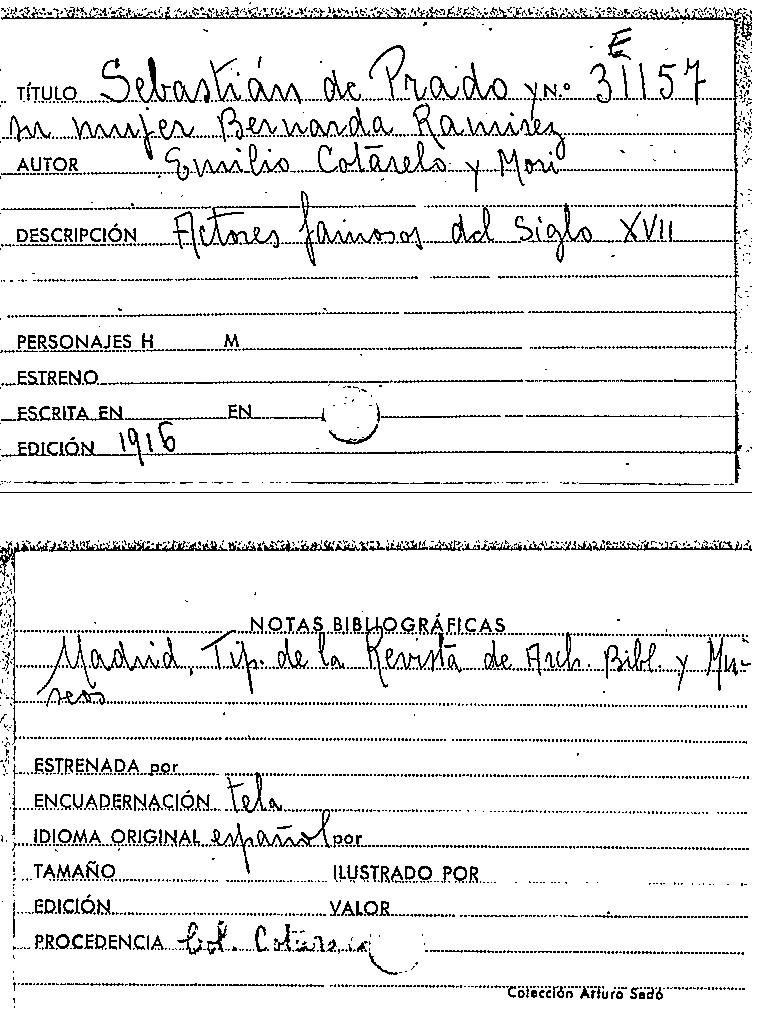 E
TÍTULO Sebastián de Prado y N.º 31157
su mujer Bernarda Ramirez
AUTOR Emilio Cotarelo y Mori
DESCRIPCIÓN Actores famosos del Siglo XVII
PERSONAJES H M
ESTRENO
ESCRITA EN EN
EDICIÓN 1916
NOTAS BIBLIOGRÁFICAS
Madrid, Tip. de la Revista de Arch. Bibl. y Mu-
seos
ESTRENADA por
ENCUADERNACIÓN tela
IDIOMA ORIGINAL español por
TAMAÑO ILUSTRADO POR
EDICIÓN VALOR
PROCEDENCIA Col.
Colección Arturo Sedó